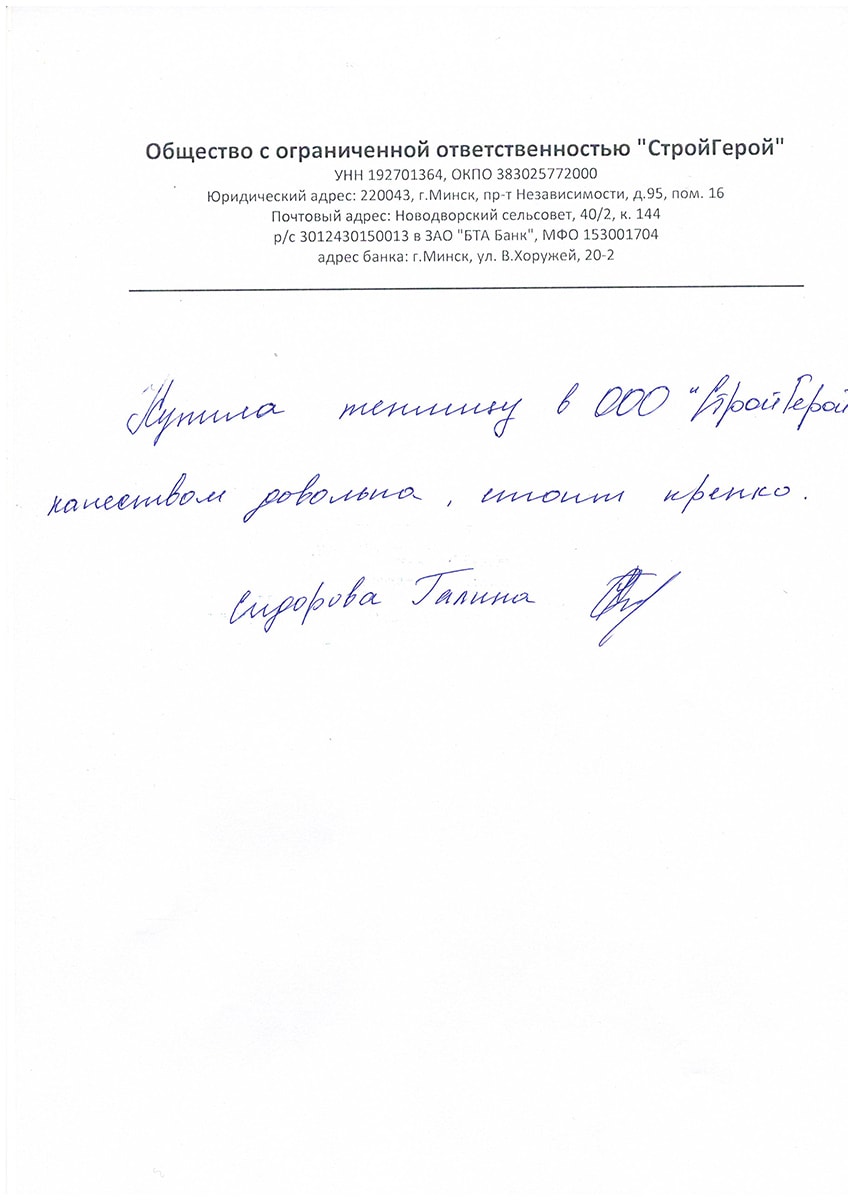 Общество с ограниченной ответственностью "СтройГерой"
УНН 192701364, ОКПО 383025772000
Юридический адрес: 220043, г.Минск, пр-т Независимости, д.95, пом. 16
Почтовый адрес: Новодворский сельсовет, 40/2, к. 144
р/с 3012430150013 в ЗАО "БТА Банк", МФО 153001704
адрес банка: г.Минск, ул. В.Хоружей, 20-2
Купила теплицу в ООО "СтройГерой
качеством довольна, стоит крепко.
Сидорова Галина